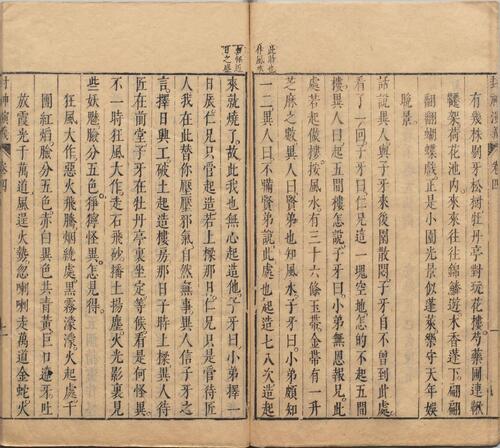 封神演義
卷四
有幾株剔牙松樹牡丹亭對玩花樓芍藥圃連鞦
韆架荷花池內來來往往錦鱗遊木香蓬下翩翩
翩翩蝴蝶戲正是小園光景似蓬萊樂守天年娛
晚景
話說異人與子牙來後園散悶子牙自不曾到此處
看了一回子牙曰仁兄這一塊空地怎的不起五間
樓異人曰起五間樓怎說子牙曰小弟無恩報兄此
處若起做樓按風水有三十六條玉帶金帶有一升
芝麻之數異人曰賢弟也知風水子牙曰小弟頗知
一二異人曰不瞞賢弟說此處也起造七八次造起
此時也
作風水
來就燒了故此我也無心起造他子牙曰小弟擇一
日辰仁兄只管起造若上樑那日仁兄只是管待匠
人我在此替你壓壓邪氣自然無事異人信子牙之
言擇日興工破土起造樓房那日子時上樑異人待
匠在前堂子牙在牡丹亭裏坐定等候看是何怪異
不一時狂風大作走石飛砂播土揚塵火光影裏見
些妖魅臉分五色猙獰怪異怎見得
狂風大作惡火飛騰烟繞處黑霧濛濛火起處千
團紅焰臉分五色赤白異色共青黃巨口獠牙吐
放霞光千萬道風逞火勢忽喇喇走萬道金蛇火
封神演義
卷四